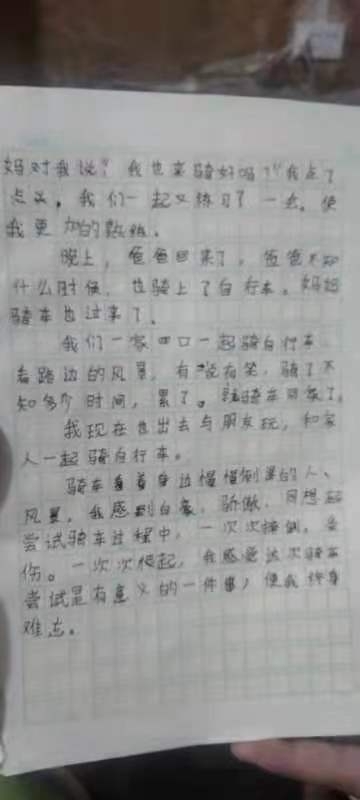 妈对我说？我也来骑好吗？”我点了
点头，我们一起又练习了一会，使
我更加的熟练。
晚上，爸爸回来了，爸爸不知
什么时候，也骑上了自行车。妈妈
骑车也过来了。
我们一家四口一起骑自行车
看路边的风景，有说有笑，骑了不
知多少时间，累了。骑车回家了。
我现在也出去与朋友玩，和家
人一起骑自行车。
骑车看着身边慢慢倒退的人、
风景，我感到自豪，骄傲，回想起
尝试骑车过程中，一次次摔倒，受
伤。一次次爬起，我感觉这次骑车
尝试是有意义的一件事，使我终身
难忘。